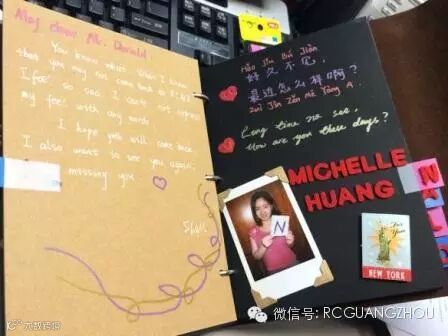 My dear Mr. Donald
You know what? When I know
that you may not come back to RCGZ
I feel so sad. I can't not express
my feel with any words.
I hope you will come back.
I also want to see you again.
missing you
Hǎo Jiǔ Bú Jiàn
好久不见，
最近怎么样啊?
Zuì Jìn Zěn me Yàng A
Long time no see,
How are you these days?
MICHELLE
HUANG
N
N
NEW YORK
微信号: RCGUANGZHOU
大数跨境